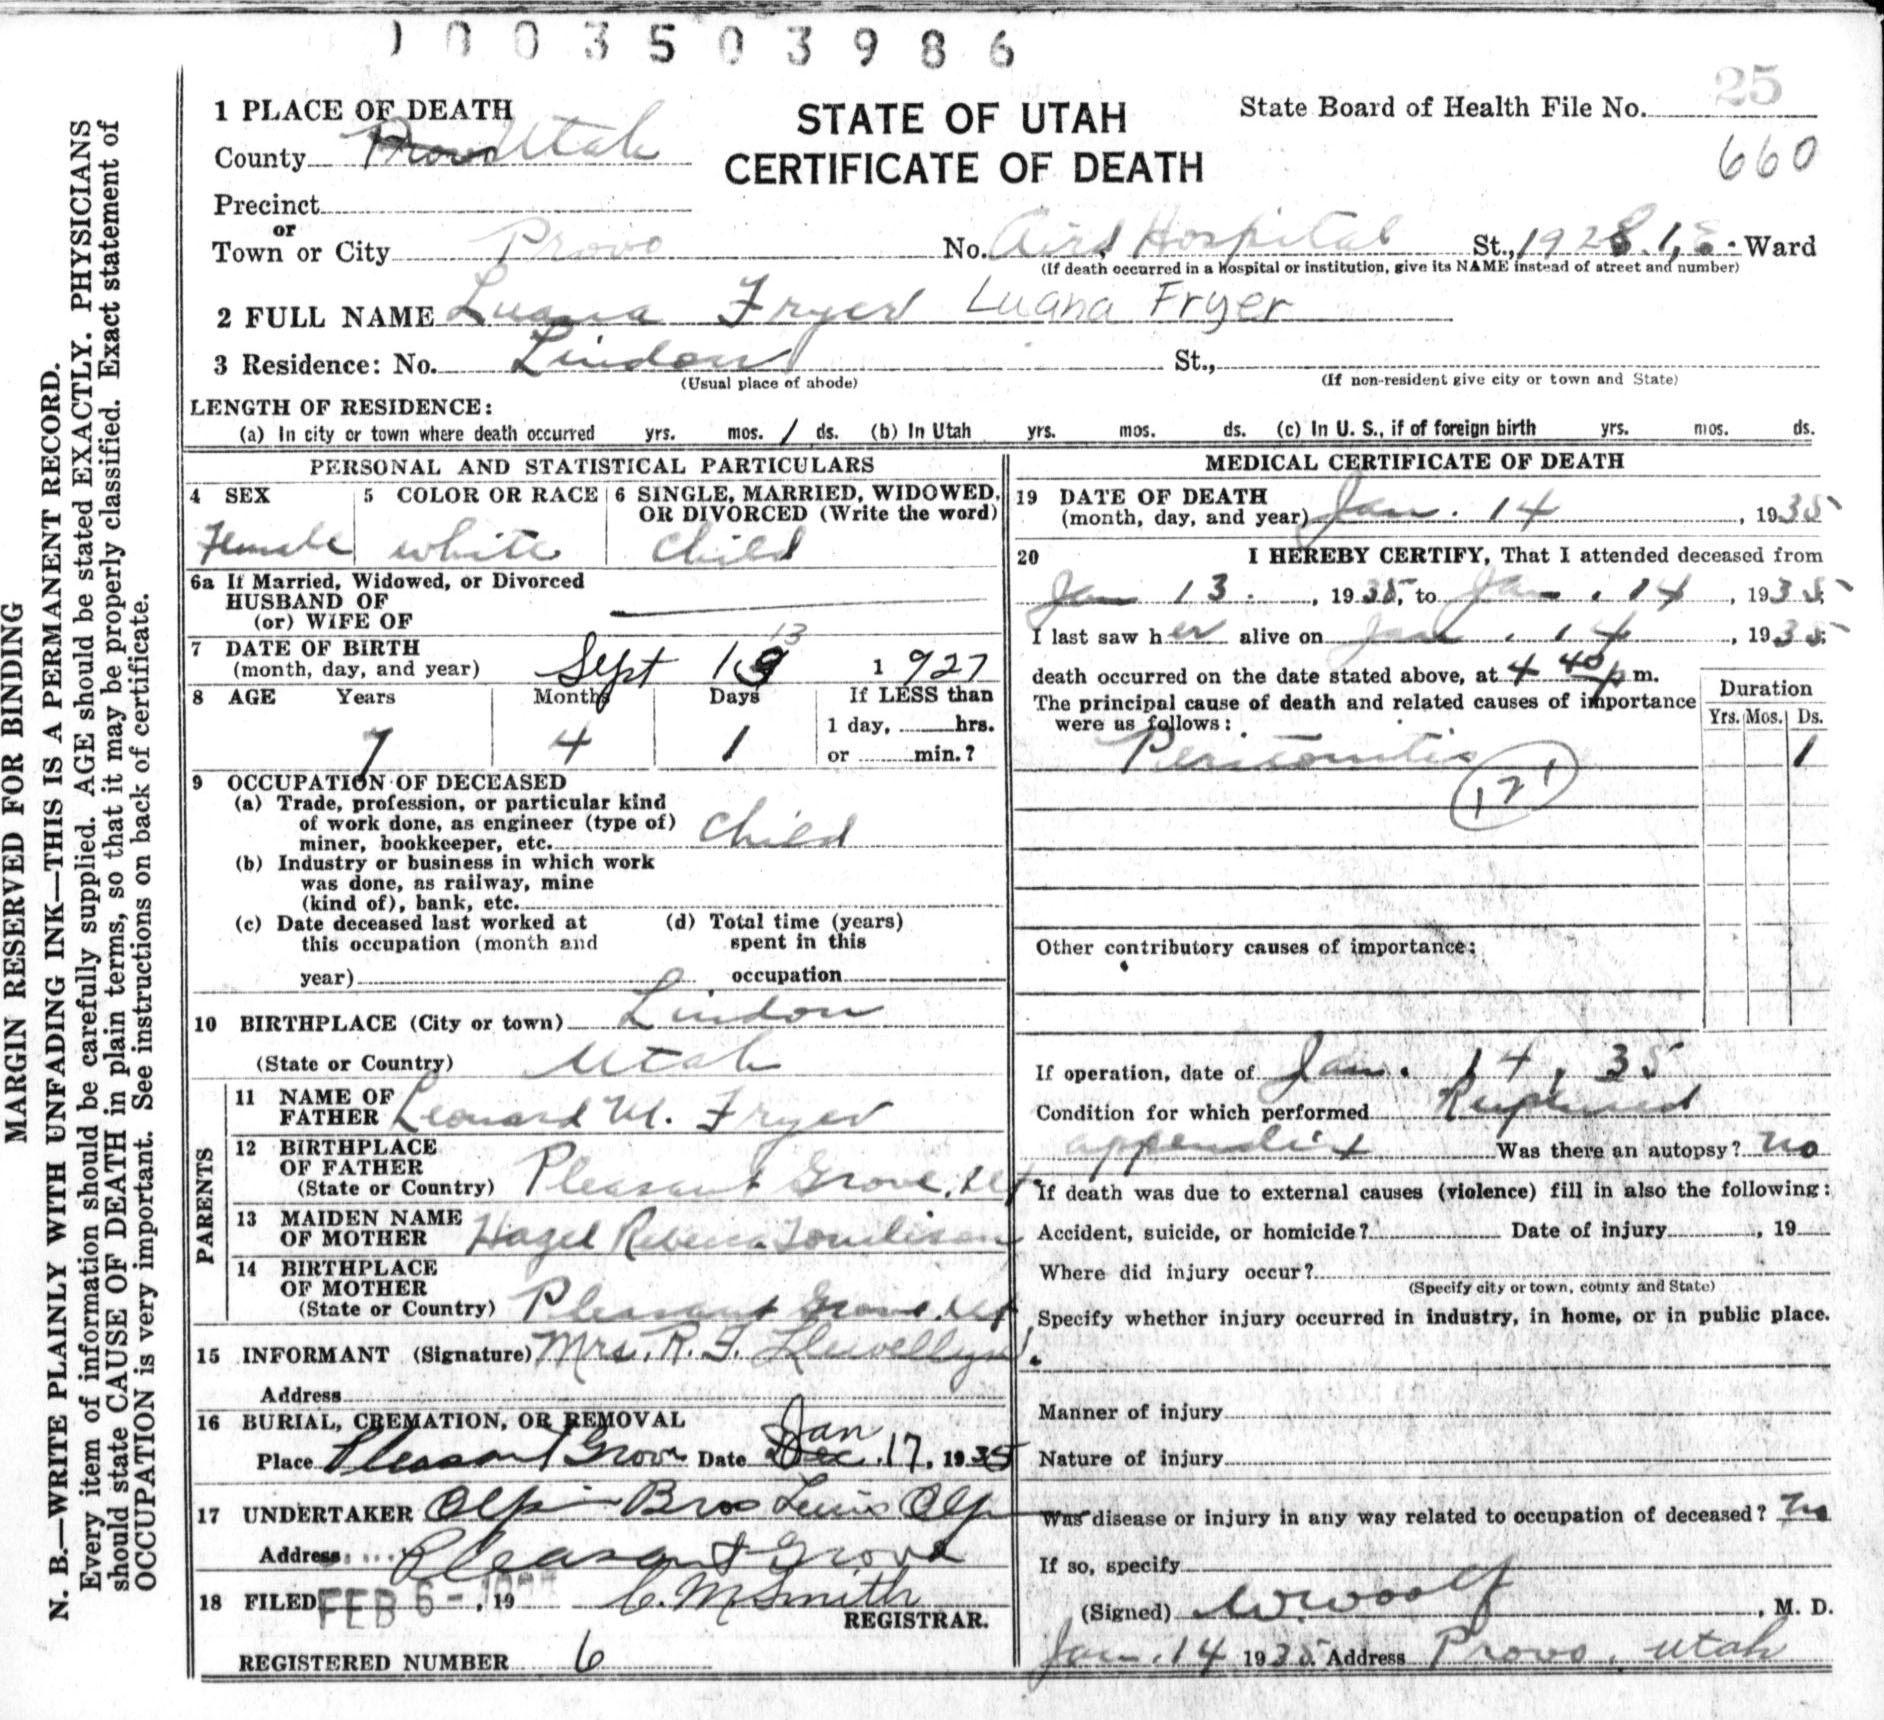 1003503986
25
1 PLACE OF DEATH
STATE OF UTAH
State Board of Health File No.
County Provo Utah
CERTIFICATE OF DEATH
660
Precinct
or
Town or City Provo No. Aird Hospital St., Ward
(If death occurred in a hospital or institution, give its NAME instead of street and number)
2 FULL NAME Luana Fryer Luana Fryer
3 Residence: No. Lindon St.,
(Usual place of abode) (If non-resident give city or town and State)
LENGTH OF RESIDENCE:
(a) In city or town where death occurred yrs. mos. 1 ds. (b) In Utah yrs. mos. ds. (c) In U. S., if of foreign birth yrs. mos. ds.
PERSONAL AND STATISTICAL PARTICULARS
4 SEX 5 COLOR OR RACE 6 SINGLE, MARRIED, WIDOWED,
OR DIVORCED (Write the word)
Female white child
6a If Married, Widowed, or Divorced
HUSBAND OF
(or) WIFE OF
7 DATE OF BIRTH
(month, day, and year) Sept 13 1927
8 AGE Years Months Days If LESS than
1 day, hrs.
or min.?
7 4 1
9 OCCUPATION OF DECEASED
(a) Trade, profession, or particular kind
of work done, as engineer (type of)
miner, bookkeeper, etc. child
(b) Industry or business in which work
was done, as railway, mine
(kind of), bank, etc.
(c) Date deceased last worked at
this occupation (month and
year)
(d) Total time (years)
spent in this
occupation
10 BIRTHPLACE (City or town) Lindon
(State or Country) Utah
PARENTS
11 NAME OF
FATHER Leonard M. Fryer
12 BIRTHPLACE
OF FATHER
(State or Country) Pleasant Grove, Ut
13 MAIDEN NAME
OF MOTHER Hazel Rebecca Tomlinson
14 BIRTHPLACE
OF MOTHER
(State or Country) Pleasant Grove, Ut
15 INFORMANT (Signature) Mrs. R. F. Llewellyn
Address
16 BURIAL, CREMATION, OR REMOVAL
Jan
Place Pleasant Grove Date Dec. 17, 1935
17 UNDERTAKER Olpin Bros Lewis Olp
Address Pleasant Grove
18 FILED FEB 6- , 19 C. M Smith
REGISTRAR.
REGISTERED NUMBER 6
MEDICAL CERTIFICATE OF DEATH
19 DATE OF DEATH
(month, day, and year) Jan. 14, 1935
20 I HEREBY CERTIFY, That I attended deceased from
Jan 13, 1935, to Jan. 14, 1935;
I last saw her alive on Jan. 14, 1935;
death occurred on the date stated above, at 4 40 p m.
The principal cause of death and related causes of importance
were as follows:
Duration
Yrs. Mos. Ds.
Peritonitis 1
121
Other contributory causes of importance:
If operation, date of Jan. 14, 35
Condition for which performed Ruptured
appendix Was there an autopsy? no
If death was due to external causes (violence) fill in also the following:
Accident, suicide, or homicide? Date of injury , 19
Where did injury occur?
(Specify city or town, county and State)
Specify whether injury occurred in industry, in home, or in public place.
Manner of injury
Nature of injury
Was disease or injury in any way related to occupation of deceased? no
If so, specify
(Signed) W. Woolf, M. D.
Jan. 14 1935. Address Provo, Utah
MARGIN RESERVED FOR BINDING
N. B.—WRITE PLAINLY WITH UNFADING INK—THIS IS A PERMANENT RECORD.
Every item of information should be carefully supplied. AGE should be stated EXACTLY. PHYSICIANS
should state CAUSE OF DEATH in plain terms, so that it may be properly classified. Exact statement of
OCCUPATION is very important. See instructions on back of certificate.